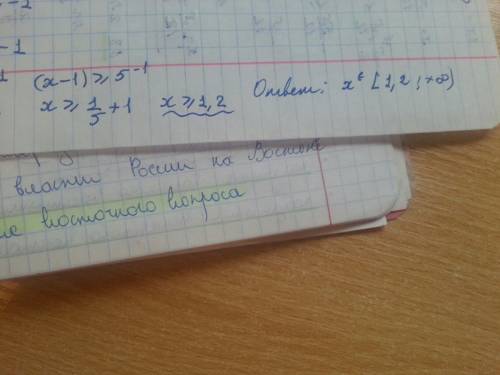 -1
(x-1) ≥ 5⁻¹
x ≥ 1/5 + 1 x ≥ 1,2 Ответ: x ∈ [1,2 ; +∞)
власти России на Востоке
восточного вопроса